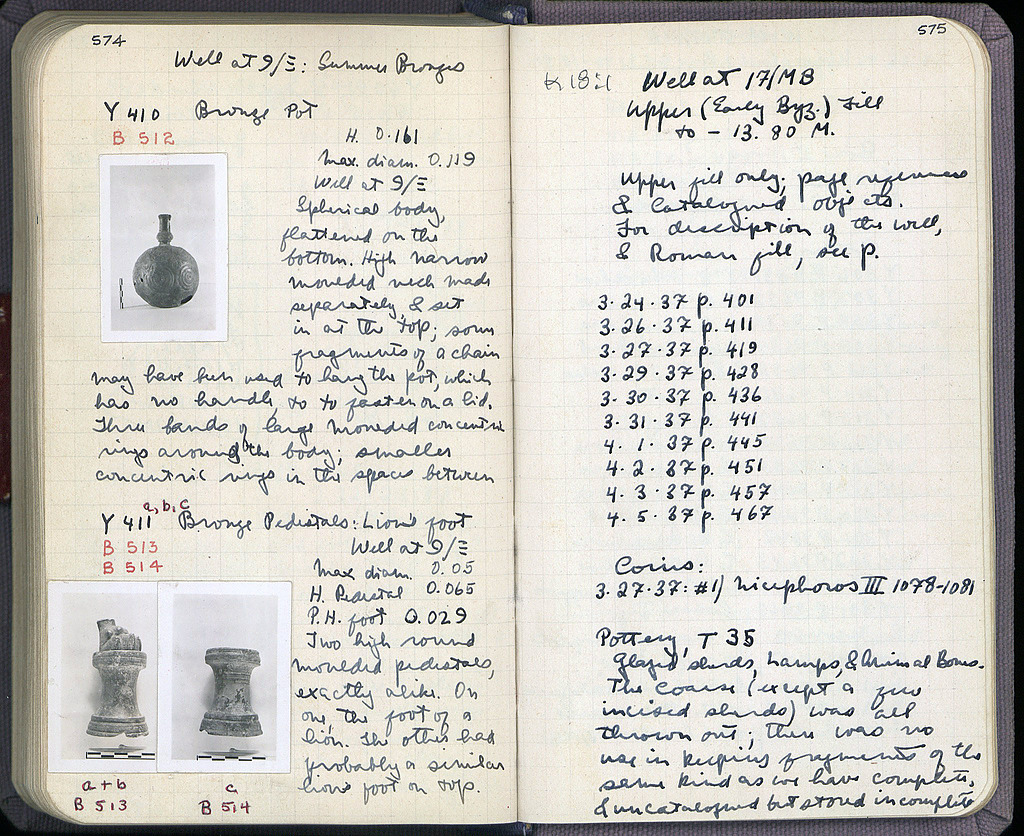 574
Well at 9/Ξ: Summer Bronzes
Y 410 Bronze Pot
B 512
H. 0.161
Max. diam. 0.119
Well at 9/Ξ
Spherical body,
flattened on the
bottom. High narrow
moulded neck made
separately, & set
in at the top; some
fragments of a chain
may have been used to hang the pot, which
has no handle, or to fasten on a lid.
Three bands of large moulded concentric
rings around the body; smaller
concentric rings in the spaces between
a, b, c
Y 411 Bronze Pedestals: Lion's foot
B 513
B 514
Well at 9/Ξ
Max diam. 0.05
H. Pedestal 0.065
P.H. foot 0.029
Two high round
moulded pedestals,
exactly alike. On
one, the foot of a
lion. The other had
probably a similar
lion's foot on top.
a+b
B 513
c
B 514
575
Well at 17/MB
Upper (Early Byz.) Fill
to - 13.80 M.
Upper fill only; page references
& Catalogued objects.
For description of the well,
& Roman fill, see p.
3.24.37 p. 401
3.26.37 p. 411
3.27.37 p. 419
3.29.37 p. 428
3.30.37 p. 436
3.31.37 p. 441
4.1.37 p. 445
4.2.37 p. 451
4.3.37 p. 457
4.5.37 p. 467
Coins:
3.27.37: #1) Nicephoros III 1078-1081
Pottery, T 35
Glazed sherds, Lamps, & Animal Bones.
The coarse (except a few
incised sherds) was all
thrown out; there was no
use in keeping fragments of the
same kind as we have complete,
& uncatalogued but stored incomplete